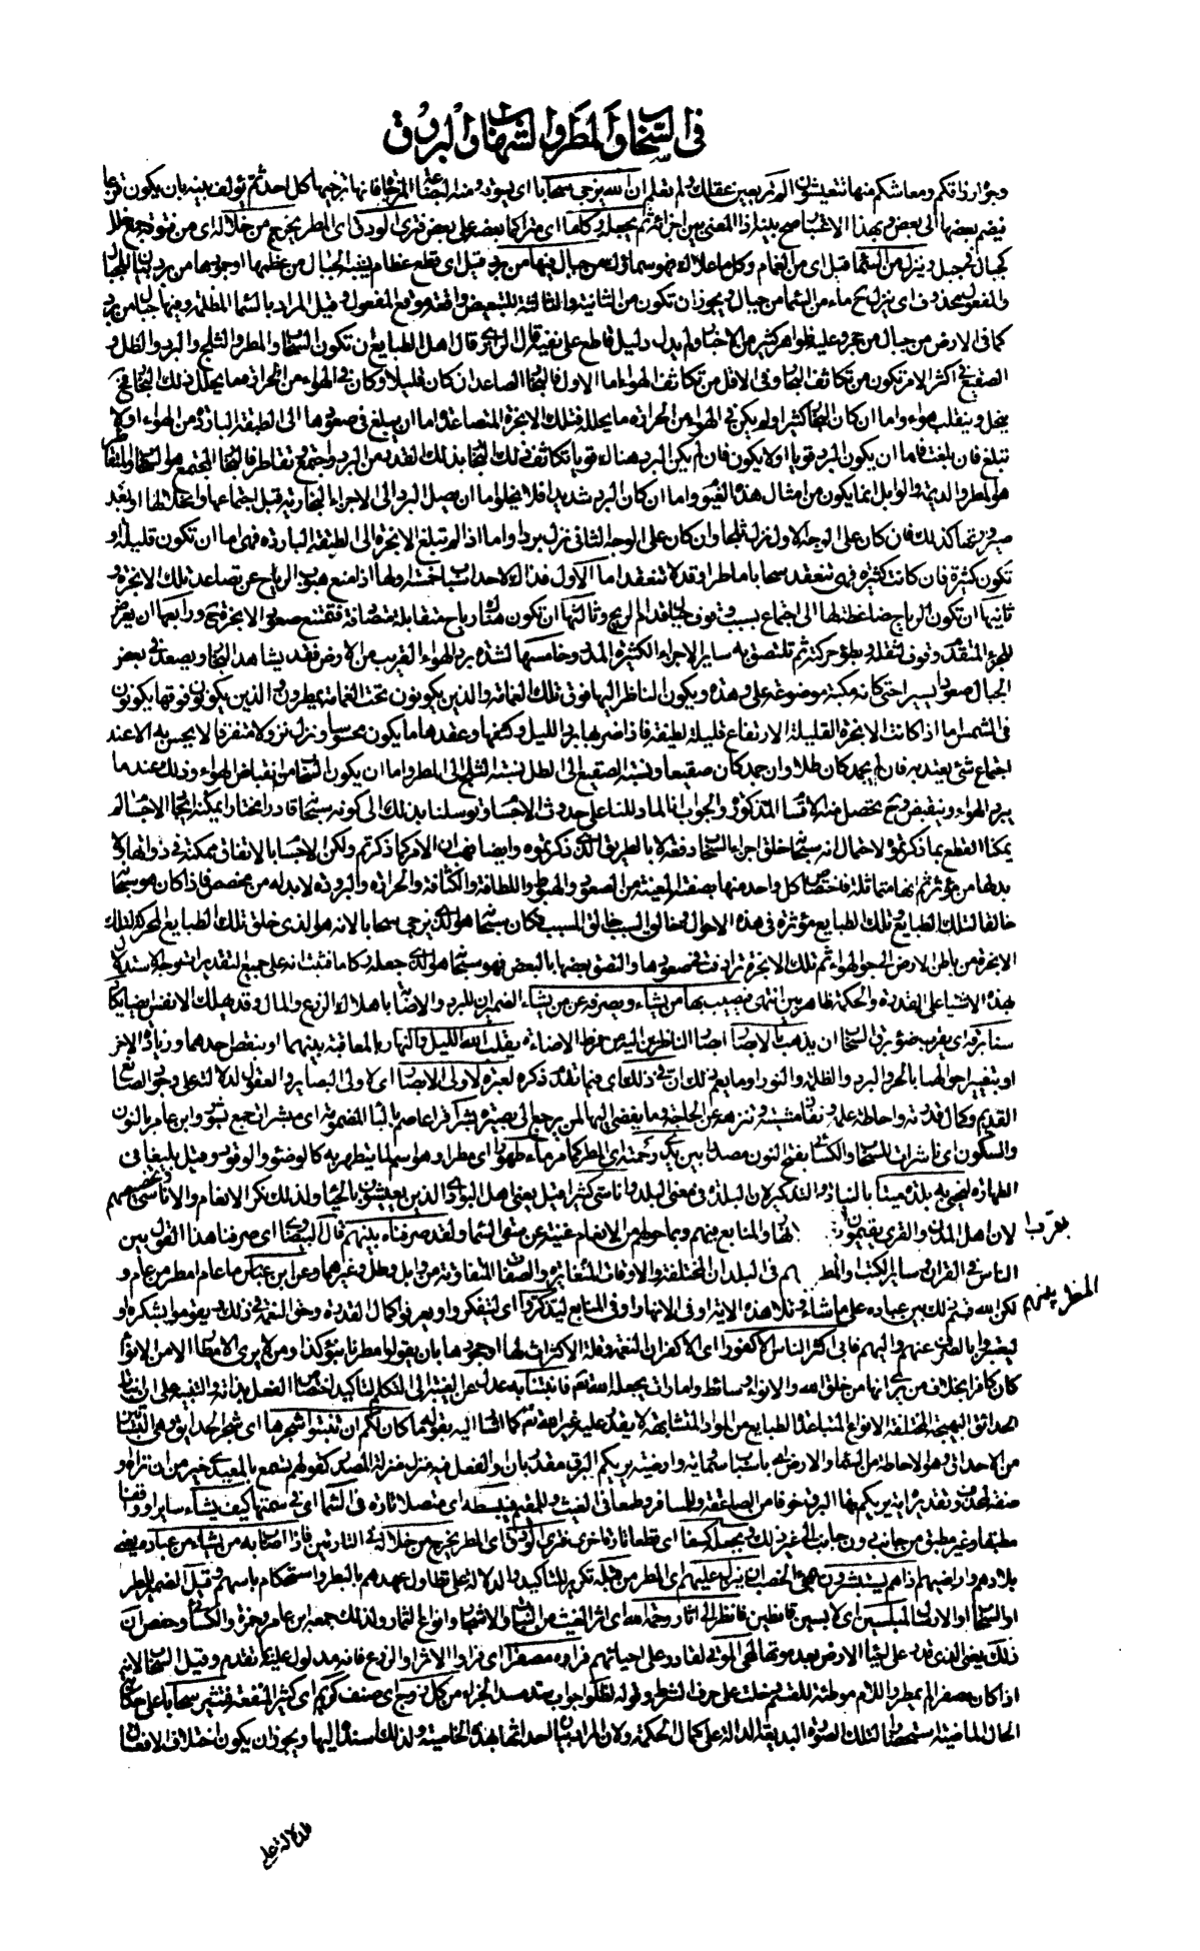 في السحاب والمطر والشهاب والبروق
وجوه ارزاقكم ومعاشكم منها تتعيشون الم تر بعين عقلك ولم تعلم ان الله يزجي سحابا اي يسوقه ومنه البضاعة المزجاة فانها يزجيها كل احد ثم يؤلف بينه بان يكون قزعا
فيضم بعضها الى بعض وبهذا الاعتبار صح بينه اذ المعنى بين اجزائه ثم يجعله ركاما اي متراكما بعضه على بعض فترى الودق اي المطر يخرج من خلاله اي من فتوقه جمع خلل
كجبال في جبل وينزل من السماء قيل اي من الغمام وكل ما علاك فهو سماؤك من جبال فيها من برد قيل اي قطع عظام يشبه الجبال من عظمها او جمودها من برد بيان للجبال
والمفعول محذوف اي ينزل ماء من السماء من جبال ويجوز ان تكون من الثانية والثالثة للتبعيض واقعة موقع المفعول وقيل المراد بالسماء المظلة وفيها جبال من برد
كما في الارض من جبال من حجر وعليه ظواهر كثير من الاخبار ولم يدل دليل قاطع على نفيه قال الرازي قال اهل الطبايع ان تكون السحاب والمطر والثلج والبرد والطل و
الصقيع في اكثر الامر تكون من تكاثف البخار وفي الاقل من تكاثف الهواء اما الاول فالبخار الصاعد ان كان قليلا وكان في الهواء من الحرارة ما يحلل ذلك البخار فح
ينحل وينقلب هواء واما ان كان البخار كثيرا ولم يكن في الهواء من الحرارة ما يحلله فتلك الابخرة المتصاعدة اما ان يبلغ في صعودها الى الطبقة الباردة من الهواء او لا
تبلغ فان بلغت فاما ان يكون البرد قويا او لا يكون فان لم يكن البرد هناك قويا تكاثف ذلك البخار بذلك القدر من البرد واجتمع وتقاطر فالبخار المجتمع هو السحاب والمتقاطر
هو المطر والديمة والوابل انما يكون من امثال هذه الغيوم واما ان كان البرد شديدا فلا يخلو اما ان يصل البرد الى الاجزاء البخارية قبل اجتماعها وانحلالها او بعد
صيرورتها كذلك فان كان على الوجه الاول نزل ثلجا وان كان على الوجه الثاني نزل بردا واما اذا لم تبلغ الابخرة الى الطبقة الباردة فهي اما ان تكون قليلة او
تكون كثيرة فان كانت كثيرة فهي تنعقد سحابا ماطرا وقد لا تنعقد اما الاول فذاك لاحد اسباب خمسة اولها اذا منع هبوب الرياح عن تصاعد تلك الابخرة و
ثانيها ان تكون الرياح ضاغطة لها الى اجتماع بسبب وقوف جبال قدام الريح وثالثها ان تكون هناك رياح متقابلة متصادمة فتمنع صعود الابخرة ح ورابعها ان يعرض
للجزء المتقدم وقوف لثقله وبطؤ حركته ثم تلتصق به ساير الاجزاء الكثيرة المدد وخامسها لشدة برد الهواء القريب من الارض فقد يشاهد البخار يصعد في بعض
الجبال صعودا يسيرا حتى كانه مكبة موضوعة على وهدة ويكون الناظر اليها فوق تلك الغمامة والذين يكونون تحت الغمامة يمطرون والذين يكونون فوقها يكونون
في الشمس اما اذا كانت الابخرة القليلة الارتفاع قليلة لطيفة فاذا ضربها برد الليل وكثفها وعقدها ما يكون محسوسا ونزل نزولا متفرقا لا يحس به الا عند
اجتماع شئ يعتد به فان لم يجمد كان طلا وان جمد كان صقيعا ونسبة الصقيع الى الطل نسبة الثلج الى المطر واما ان يكون السحاب من انقباض الهواء وذلك عند ما
يبرد الهواء وينقبض وح يحصل منه الاقسام المذكورة والجواب انا لما دللنا على حدوث الاجسام وتوسلنا بذلك الى كونه سبحانه قادرا مختارا يمكنه ايجاد الاجسام لم
يمكنا القطع بما ذكرتموه لاحتمال انه سبحانه خلق اجزاء السحاب دفعة لا بالطريق الذي ذكرتموه وايضا فهب ان الامر كما ذكرتم ولكن الاجسام بالاتفاق ممكنة في ذواتها فلا
بد لها من مؤثر ثم انها متماثلة فاختصاص كل واحد منها بصفته المعينة من الصعود والهبوط واللطافة والكثافة والحرارة والبرودة لا بد له من مخصص فاذا كان هو سبحانه
خالقا لتلك الطبايع وتلك الطبايع مؤثرة في هذه الاحوال وخالق السبب خالق المسبب فكان سبحانه هو الذي يزجي سحابا لانه هو الذي خلق تلك الطبايع المحركة لتلك
الابخرة من باطن الارض الى جو الهواء ثم تلك الابخرة ترادفت في صعودها والتصق بعضها بالبعض فهو سبحانه هو الذي جعله ركاما فثبت انه على جميع التقديرات توجه الاستدلال
بهذه الاشياء على القدرة والحكمة ظاهر بين انتهى فيصيب بها من يشاء ويصرفه عن من يشاء الضميران للبرد والاصابة باهلاك الزرع والمال وقد يهلك الانفس ايضا يكاد
سنا برقه اي يقرب ضوء برق السحاب ان يذهب بالابصار ابصار الناظرين اليه من فرط الاضاءة يقلب الله الليل والنهار بالمعاقبة بينهما او بنقص احدهما وزيادة الاخر
او بتغيير احوالهما بالحر والبرد والظلمة والنور او ما يعم ذلك ان في ذلك اي فيما تقدم ذكره لعبرة لاولي الابصار اي لاولي البصاير والعقول لدلالته على وجود الصانع
القديم وكمال قدرته واحاطة علمه ونفاذ مشيته وتنزهه عن الحاجة وما يفضي اليها لمن يرجع الى بصيرة بشرا قرا عاصم بالباء المضمومة اي مبشرات جمع بشور وابن عامر بالنون
والسكون اي ناشرات للسحاب والكسائي بفتح النون مصدرا بين يدي رحمته اي المطر كما مر ماء طهورا اي مطرا وهو اسم لما يتطهر به كالوضوء والوقود وقيل بليغا في
الطهارة لنحيي به بلدة ميتا بالنبات والتذكير لان البلدة في معنى البلد واناسي كثيرا قيل يعني اهل البوادي الذين يعيشون بالحيا ولذلك نكر الانعام والاناسي وتخصيصهم
لان اهل المدن والقرى يقيمون بقرب الانهار والمنابع فبهم وبما حولهم من الانعام غنية عن سقي السماء ولقد صرفناه بينهم قال البيضاوي اي صرفنا هذا القول بين
الناس في القرآن وساير الكتب او المطر بينهم في البلدان المختلفة والاوقات المتغايرة والصفات المتفاوتة من وابل وطل وغيرهما وعن ابن عباس ما عام امطر من عام و
لكن الله قسم ذلك بين عباده على ما شاء وتلا هذه الاية او في الانهار او في المنابع ليذكروا اي ليتفكروا ويعرفوا كمال القدرة وحق النعمة في ذلك ويقوموا بشكره او
ليعتبروا بالصرف عنهم واليهم فابى اكثر الناس الا كفورا اي الا كفران النعمة وقلة الاكتراث لها او جحودها بان يقولوا مطرنا بنوء كذا ومن لا يرى الامطار الا من الانواء
كان كافرا بخلاف من يرى انها من خلق الله والانواء وسائط وامارات بجعله تعالى فانبتنا به عدل عن الغيبة الى التكلم لتأكيد اختصاص الفعل بذاته والتنبيه على ان انبات
الحدائق البهيجة المختلفة الانواع المتباعدة الطبايع من المواد المتشابهة لا يقدر عليه غيره تعالى كما اشار اليه بقوله ما كان لكم ان تنبتوا شجرها اي شجر الحدايق وهي البساتين
من الاحداق وهو الاحاطة من السماء والارض اي باسباب سمائية وارضية يريكم البرق مقدر بان او الفعل فيه منزل منزلة المصدر كقولهم تسمع بالمعيدي خير من ان تراه او
صفة لمحذوف تقديره آية يريكم بها البرق خوفا من الصاعقة وللمسافر وطمعا في الغيث وللمقيم فيبسطه اي متصلا تارة في السماء اي في سمتها كيف يشاء سايرا وواقفا
مطبقا وغير مطبق من جانب دون جانب الى غير ذلك ويجعله كسفا اي قطعا تارة اخرى فترى الودق اي المطر يخرج من خلاله في التارتين فاذا اصاب به من يشاء من عباده يعني
بلادهم واراضيهم اذا هم يستبشرون بمجيء الخصب ان ينزل عليهم اي المطر من قبله تكرير للتأكيد والدلالة على تطاول عهدهم بالمطر واستحكام يأسهم وقيل الضمير للمطر
او السحاب او الارسال لمبلسين اي لايسين قانطين فانظر الى اثار رحمة الله اي اثر الغيث من النبات والاشجار وانواع الثمار ولذلك جمعه ابن عامر وحمزة والكسائي وحفص ان
ذلك يعني الذي قدر على احياء الارض بعد موتها لمحيي الموتى لقادر على احيائهم فراوه مصفرا اي فراوا الاثر او الزرع فانه مدلول عليه بما تقدم وقيل السحاب لانه
اذا كان مصفرا لم يمطر واللام موطئة للقسم دخلت على حرف الشرط وقوله لظلوا جواب سد مسد الجزاء من كل زوج اي صنف كريم اي كثير المنفعة فتثير سحابا على حكاية
الحال الماضية استحضارا لتلك الصورة البديعة الدالة على كمال الحكمة ولان المراد بيان احداثها بهذه الخاصية ولذلك اسنده اليها ويجوز ان يكون اختلاف الافعال
بقرب ا
المطر بينهم
للدلالة على